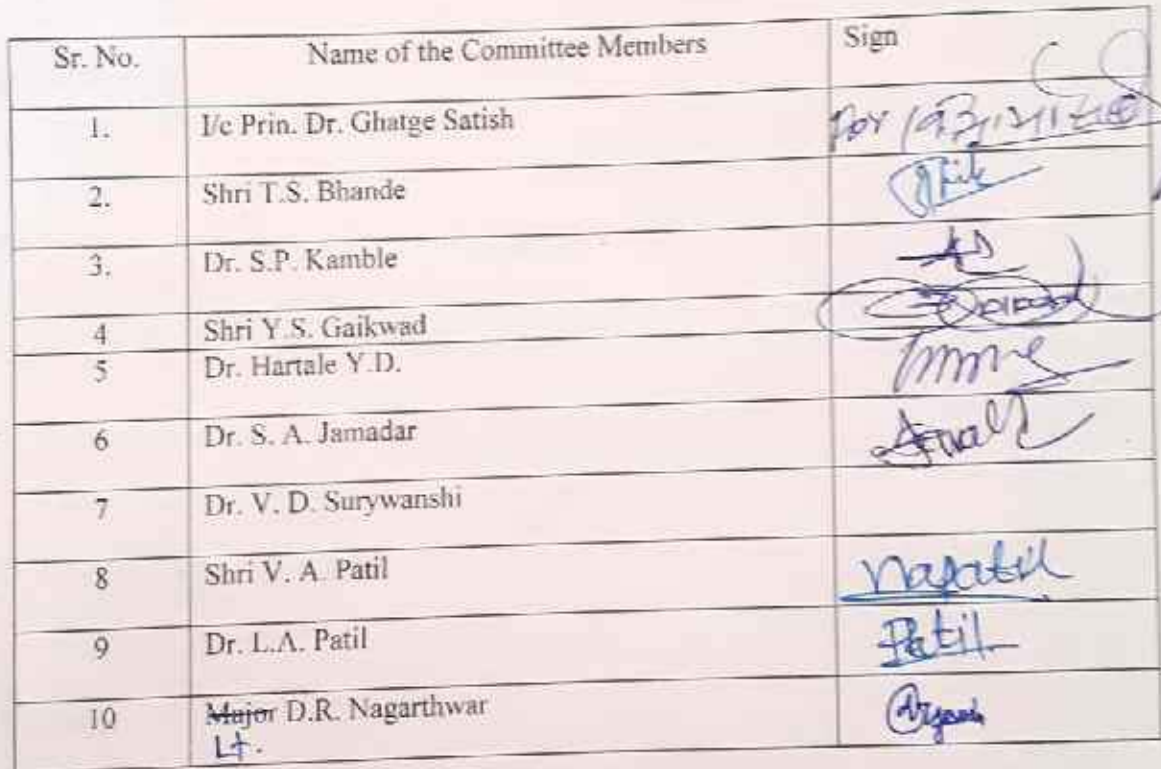 Sr. No. Name of the Committee Members Sign
1. I/c Prin. Dr. Ghatge Satish For
2. Shri T.S. Bhande
3. Dr. S.P. Kamble
4 Shri Y.S. Gaikwad
5 Dr. Hartale Y.D.
6 Dr. S. A. Jamadar
7 Dr. V. D. Surywanshi
8 Shri V. A. Patil Vapatil
9 Dr. L.A. Patil Patil
10 Major D.R. Nagarthwar
Lt.